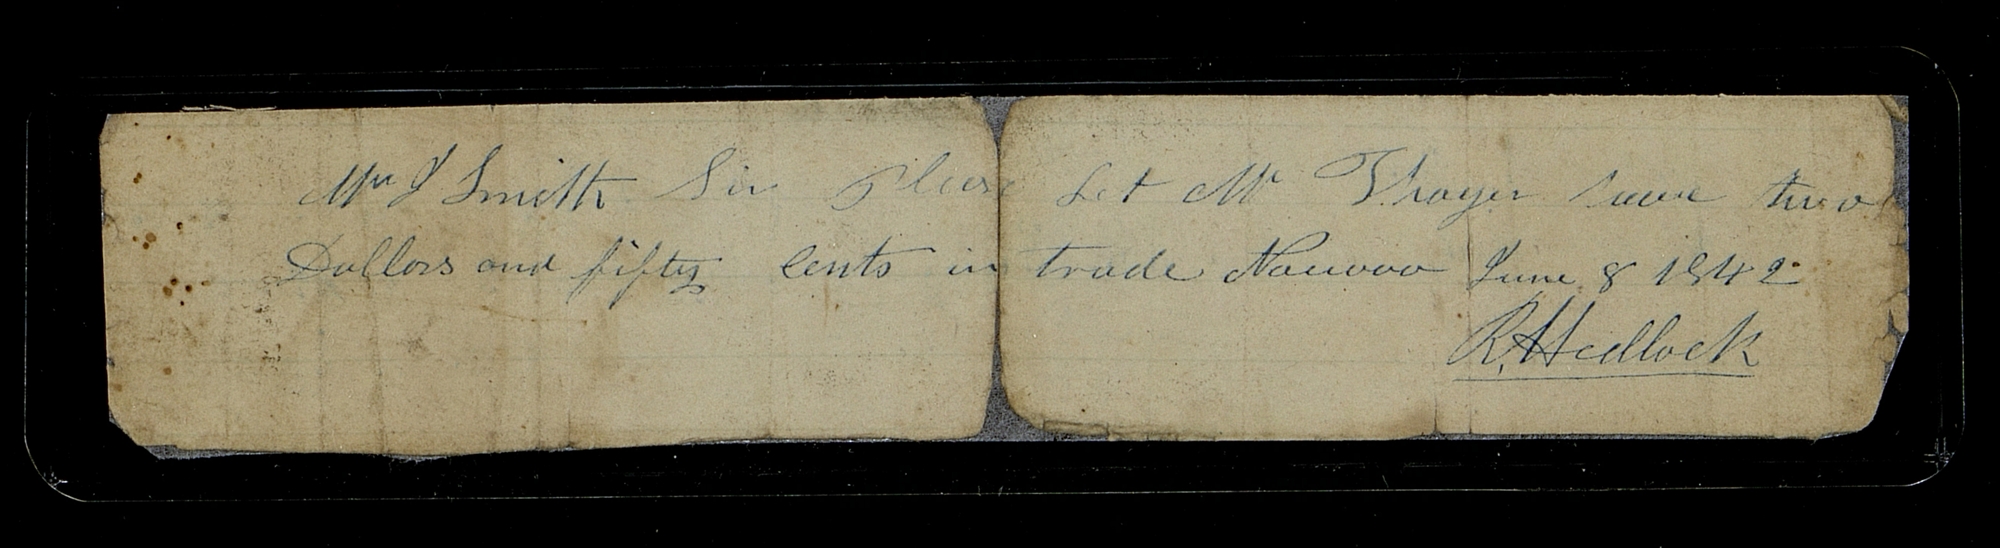 Mr J Smith Sir Please Let Mr Thayer have two
Dollars and fifty Cents in trade Nauvoo June 8 1842
R. Hedlock